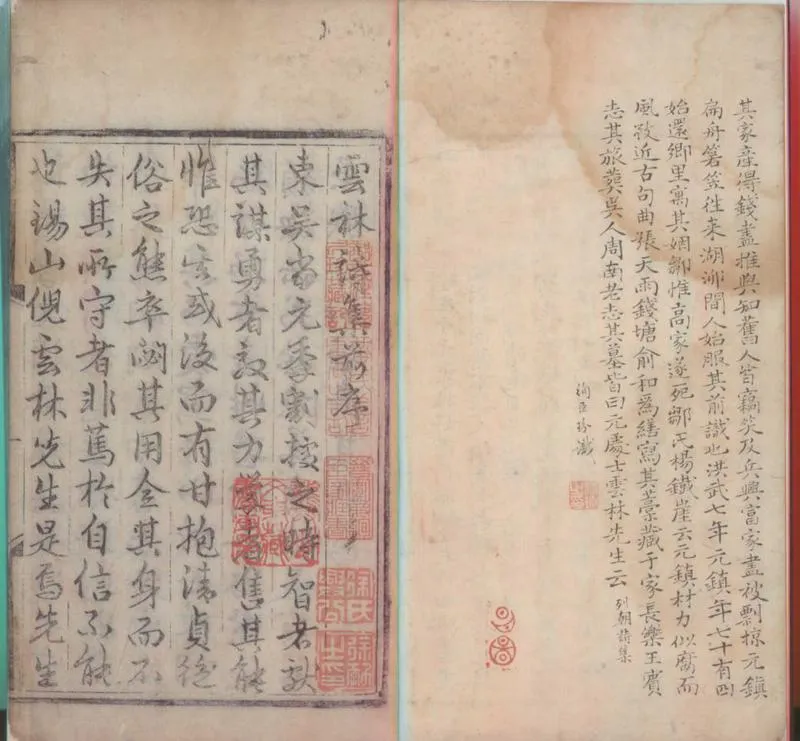 其家產得錢盡推與知舊人皆竊笑及兵興富家盡被剽掠元鎮
扁舟箬笠往來湖泖間人始服其前識也洪武七年元鎮年七十有四
始還鄉里寓其姻鄒惟高家遂死鄒氏楊鐵崖云元鎮材力似腐而
風致近古句曲張天雨錢塘俞和爲繕寫其藁藏于家長樂王賓
志其旅葬吳人周南老志其墓皆曰元處士雲林先生云 列朝詩集
雲林詩集前序
東吳當元季割據之時智者獻
其謀勇者效其力學者售其能
惟恐其或後而有甘抱清貞絕
俗之態卒閟其用全其身而不
失其所守者非篤於自信不能
也錫山倪雲林先生是焉先生